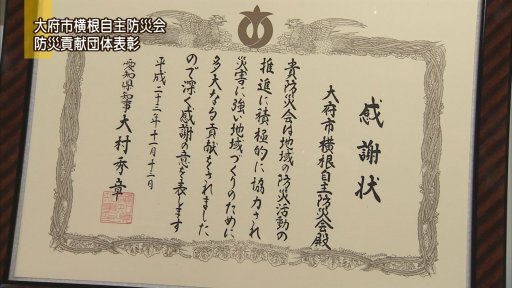 大府市横根自主防災会
防災貢献団体表彰
感謝状
大府市横根自主防災会殿
貴防災会は地域の防災活動の
推進に積極的に協力され
災害に強い地域づくりのために
多大なる貢献をされました
ので深く感謝の意を表します
平成二十三年十一月十二日
愛知県知事大村秀章